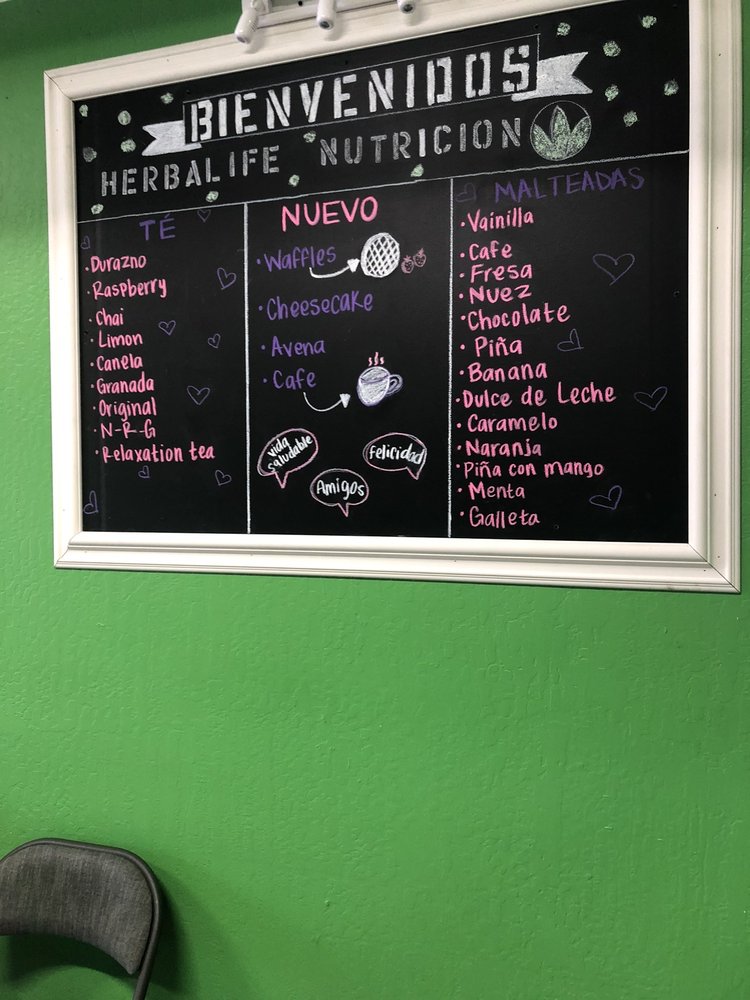 BIENVENIDOS
HERBALIFE NUTRICION
TÉ
• Durazno
• Raspberry
• Chai
• Limon
• Canela
• Granada
• Original
• N-R-G
• Relaxation tea
NUEVO
• Waffles
• Cheesecake
• Avena
• Cafe
vida
saludable
felicidad
Amigos
MALTEADAS
• Vainilla
• Cafe
• Fresa
• Nuez
• Chocolate
• Piña
• Banana
• Dulce de Leche
• Caramelo
• Naranja
• Piña con mango
• Menta
• Galleta